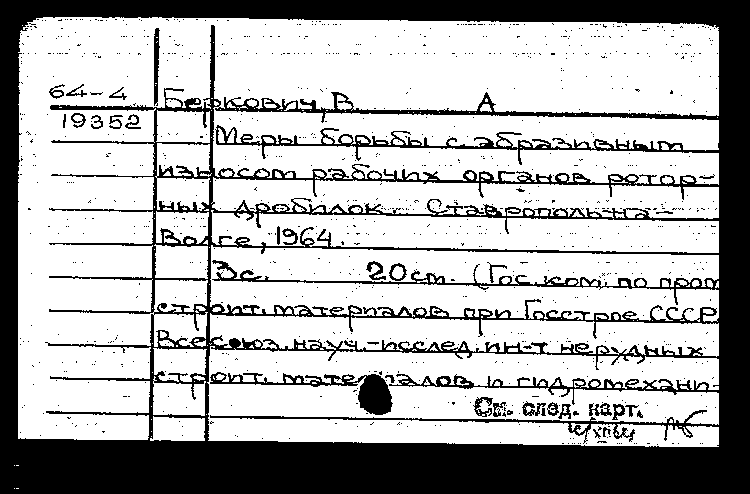 64-4
Беркович, В А
19352
Меры борьбы с абразивным
износом рабочих органов ротор-
ных дробилок. Ставрополь-на-
Волге, 1964.
3с. 20 cm. (Гос. ком. по пром
строит. материалов при Госстрое СССР
Всесоюз. науч.-исслед. ин-т нерудных
строит. материалов и гидромехани-
См. след. карт.